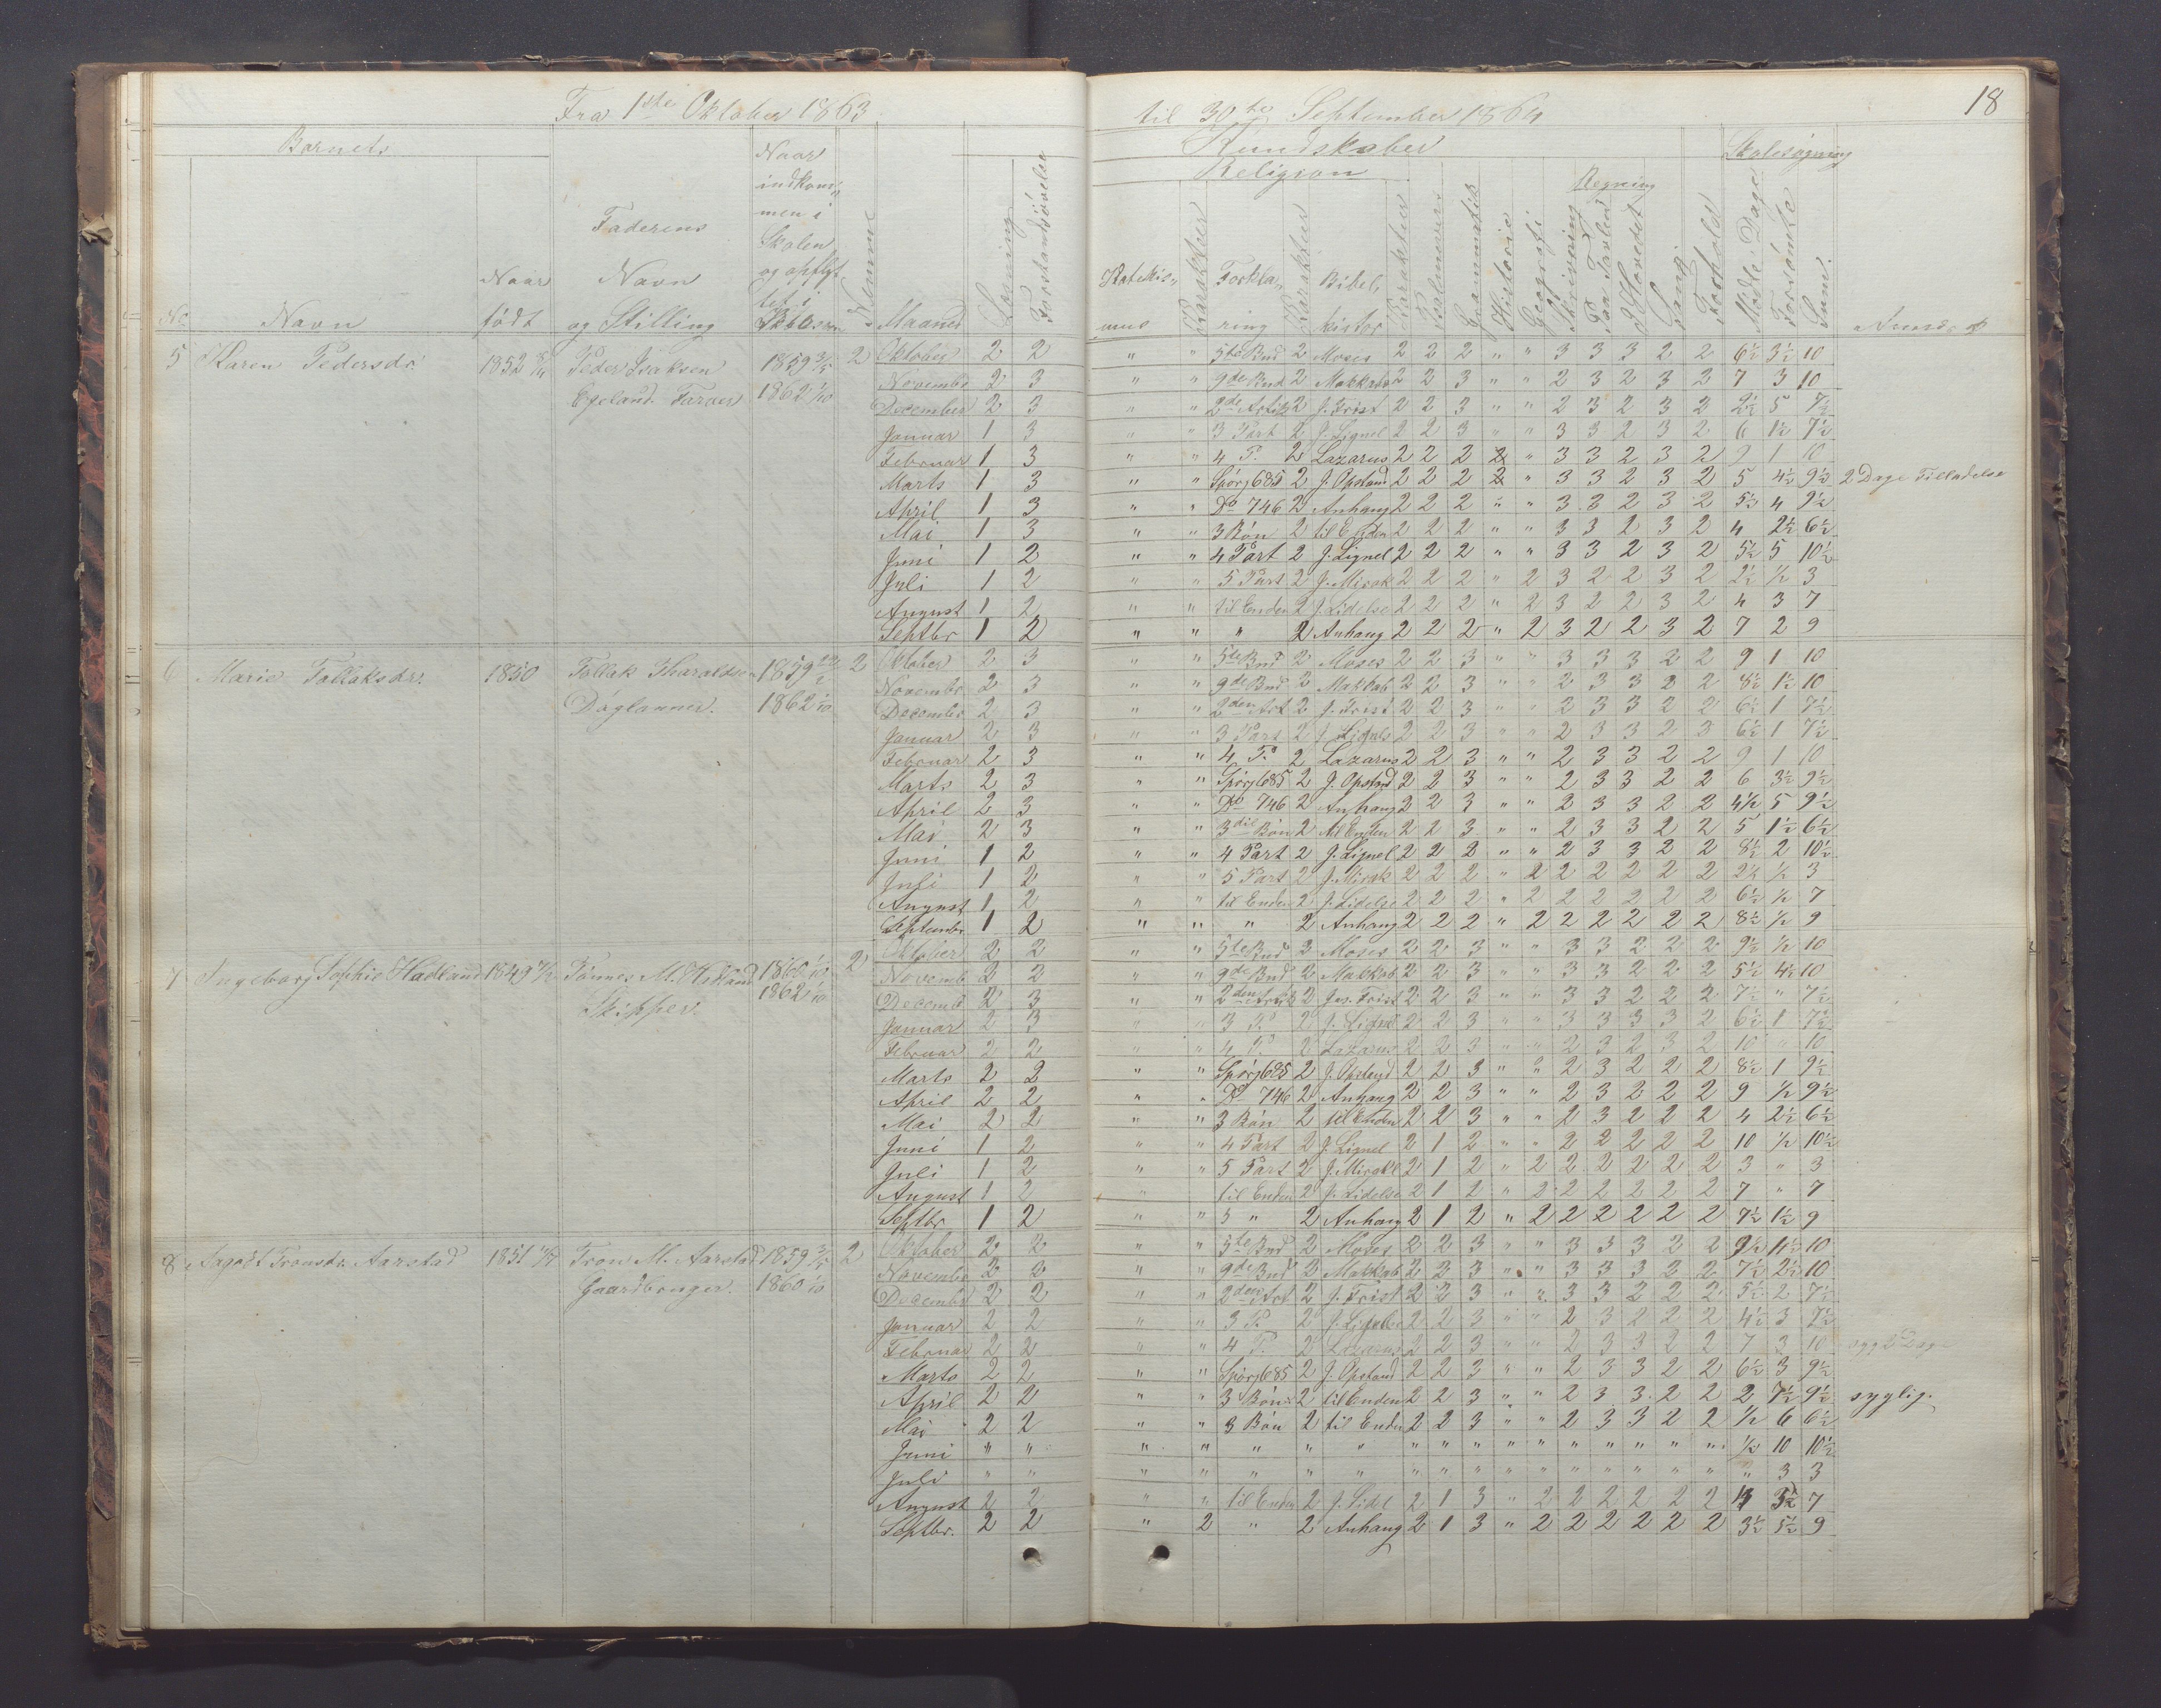 Fra 1ste Oktober 1863 til 30te September 1864 18
Barnets Kundskaber Skolesøgning
Religion Regning
No Navn Naar født Faderens Navn og Stilling Naar indkommen i Skolen og opflyt- Nemme Maaned Læsning Forstandsøvelse
Katekismus Karakter Forklaring Karakter Bibelhistor Karakter Salmever Grammatik Historie Geografi Skrivning Paa Tavlen I Hovedet Sang Forhold Mødte Dage Forsømte Sum
5 Karen Pedersdr 1852 Peder Isaksen 1859 2 Oktober 2 2 " " 5te Bud 2 Moses 2 2 2 " " 3 3 3 2 2 6½ 3½ 10
Egeland Farver 1862 1/10 Novembr 2 3 " " 9de Bud 2 Makkab 2 2 3 " " 2 3 2 3 2 7 3 10
December 2 3 " " 2de Artik 2 J. Frist 2 2 3 " " 2 3 2 3 2 2½ 5 7½
Januar 1 3 " " 3 Part 2 J. Lignel 2 2 3 " " 3 3 2 3 2 6 1½ 7½
Februar 1 3 " " 4 P. 2 Lazarus 2 2 2 2 " 3 3 2 3 2 9 1 10
Marts 1 3 " " Spørj 685 2 J. Opstand 2 2 2 2 " 3 3 2 3 2 5 4½ 9½ 2 Dage Tilladelse
April 1 3 " " Do 746 2 Anhang 2 2 2 " " 3 3 2 3 2 5½ 4 9½
Mai 1 3 " " 3 Bøn 2 til Enden 2 2 2 " " 3 3 2 3 2 4 2½ 6½
Juni 1 2 " " 4 Part 2 J. Lignel 2 2 2 " " 3 3 2 3 2 5½ 5 10½
Juli 1 2 " " 5 Part 2 J. Mirak 2 2 2 " 2 3 2 2 3 2 2½ ½ 3
August 1 2 " " til Enden 2 J. Lidelse 2 2 2 " 2 3 2 2 3 2 4 3 7
Septbr 1 2 " " " 2 Anhang 2 2 2 " 2 3 2 2 3 2 7 2 9
6 Marie Tollaksdr. 1850 Tollak Tharaldsen 1859 2 Oktober 2 3 " " 5te Bud 2 Moses 2 2 3 " " 3 3 3 2 2 9 1 10
Daglønner. 1862 1/10 Novembr 2 3 " " 9de Bud 2 Makkab 2 2 3 " " 2 3 3 2 2 8½ 1½ 10
Decembr 2 3 " " 2den Art 2 J. Frist 2 2 3 " " 2 3 3 2 2 6½ 1 7½
Januar 2 3 " " 3 Part 2 J. Lignels 2 2 3 " " 2 3 3 2 3 6½ 1 7½
Februar 2 3 " " 4 P. 2 Lazarus 2 2 3 " " 2 3 3 2 2 9 1 10
Marts 2 3 " " Spørj 685 2 J. Opstand 2 2 3 " " 2 3 3 2 2 6 3½ 9½
April 2 3 " " Do 746 2 Anhang 2 2 3 " " 2 3 3 2 2 4½ 5 9½
Mai 2 3 " " 3die Bøn 2 til Enden 2 2 3 " " 2 3 3 2 2 5 1½ 6½
Juni 1 2 " " 4 Part 2 J. Lignel 2 2 2 " " 2 3 3 2 2 8½ 2 10½
Juli 1 2 " " 5 Part 2 J. Mirak 2 2 2 " 2 2 2 2 2 2 2½ ½ 3
August 1 2 " " til Enden 2 J. Lidelse 2 2 2 " 2 2 2 2 2 2 6½ ½ 7
Septembr 1 2 " " " 2 Anhang 2 2 2 " 2 2 2 2 2 2 8½ ½ 9
7 Ingeborg Sophie Hadland 1849 Tønnes M. Hadland 1860 1/10 2 Oktober 2 2 " " 5te Bud 2 Moses 2 2 3 " " 3 3 2 2 2 9½ ½ 10
Skipper 1862 1/10 Novemb 2 2 " " 9de Bud 2 Makkab 2 2 3 " " 3 3 2 2 2 5½ 4½ 10
Decemb 2 3 " " 2den Artik 2 Jes. Frist 2 2 3 " " 3 3 2 2 2 7½ " 7½
Januar 2 3 " " 3 P. 2 J. Lignel 2 2 3 " " 3 3 3 3 2 6½ 1 7½
Februar 2 2 " " 4 P. 2 Lazarus 2 2 3 " " 2 3 2 3 2 10 " 10
Marts 2 2 " " Spørj 685 2 J. Opstand 2 2 3 " " 2 3 2 2 2 8½ 1 9½
April 2 2 " " Do 746 2 Anhang 2 2 3 " " 2 3 2 2 2 9 ½ 9½
Mai 2 2 " " 3 Bøn 2 til Enden 2 2 3 " " 2 3 2 2 2 4 2½ 6½
Juni 1 2 " " 4 Part 2 J. Lignel 2 1 2 " " 2 2 2 2 2 10 ½ 10½
Juli 1 2 " " 5 Part 2 J. Mirakl 2 1 2 " 2 2 2 2 2 2 3 " 3
August 1 2 " til Enden 2 J. Lidelse 2 1 2 " 2 2 2 2 2 2 7 " 7
Septbr 1 2 " " 5 " 2 Anhang 2 1 2 " 2 2 2 2 2 2 7½ 1½ 9
8 Tronsdr. Aarstad 1851 Tron M. Aarstad 1859 2 Oktober 2 2 " " 5te Bud 2 Moses 2 2 3 " " 3 3 3 2 2 10
Gaardbruger. 1860 1/10 Novembr 2 2 " " 9de Bud 2 Makkab 2 2 3 " " 3 3 3 2 2 7½ 2½ 10
Decembr 2 2 " " 2den Art 2 J. Frist 2 2 3 " " 3 3 2 2 2 5½ 2 7½
Januar 2 2 " " 3 P. 2 J. Lignelse 2 2 3 " " 2 3 2 2 2 4½ 3 7½
Februar 2 2 " " 4 P. 2 Lazarus 2 2 3 " " 2 3 3 2 2 7 3 10 syg 2 Dage
Marts 2 2 " " Spørj 685 2 J. Opstand 2 2 3 " " 2 3 3 2 2 6½ 3 9½
April 2 2 " " 3 Bøn 2 til Enden 2 2 3 " " 2 3 3 2 2 2 7½ 9½ syglig.
Mai 2 2 " " 3 Bøn 2 til Enden 2 2 3 " " 2 3 3 2 2 ½ 6 6½
Juni " " " " " " " " " " " " " " " " " ½ 10 10½
Juli " " " " " " " " " " " " " " " " " " 3 3
August 2 2 " " til Enden 2 J. Lidl 2 1 3 " 2 2 2 2 2 2 7
Septbr. 2 2 " 2 " 2 Anhang 2 1 3 " 2 2 2 2 2 2 3½ 5½ 9